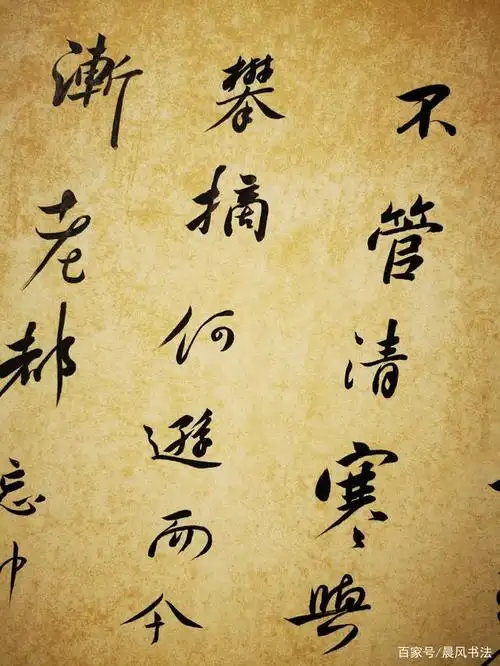 不管清寒與
攀摘何遜而今
漸老都忘
百家号/晨风书法